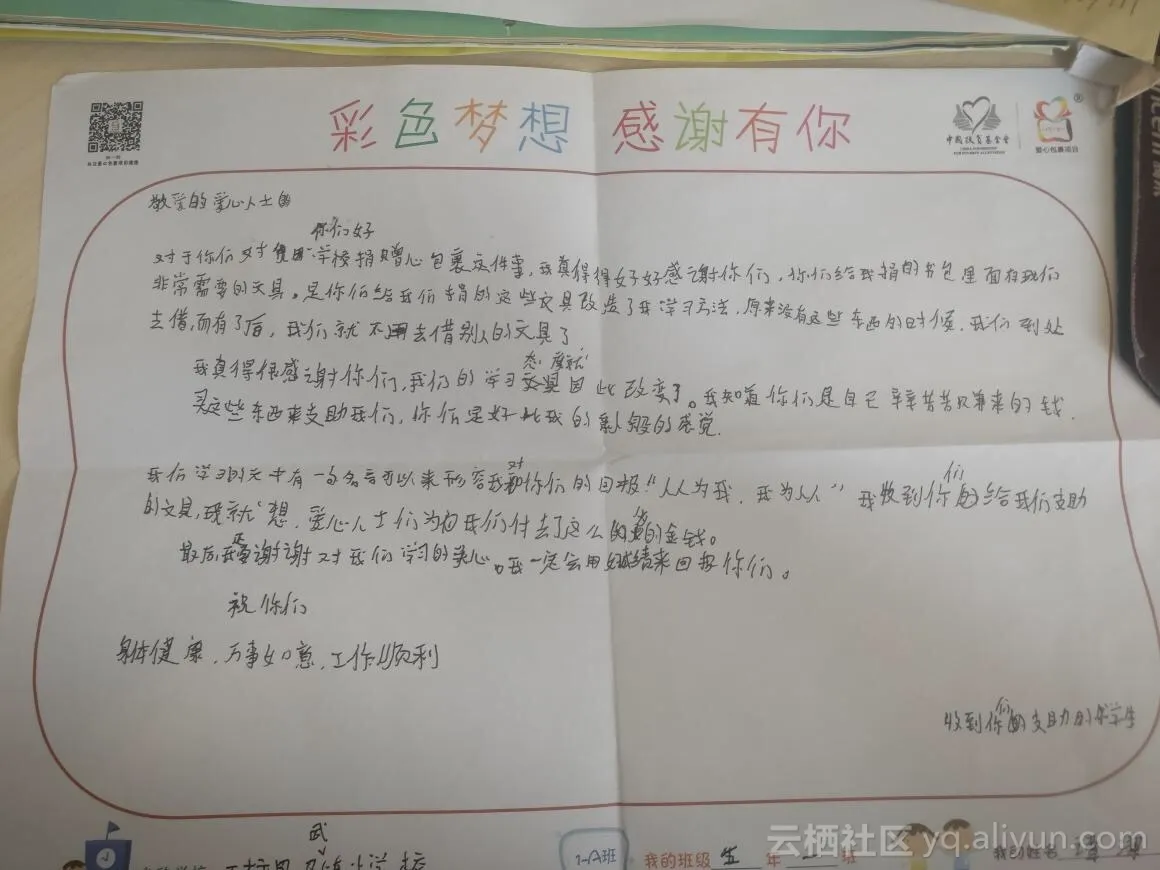 彩色梦想 感谢有你
中国扶贫基金会
CHINA FOUNDATION FOR POVERTY ALLEVIATION
爱心包裹项目
扫一扫
敬爱的爱心人士
你们好
对于你们对学校捐赠心包裹这件事,我真得得好好感谢你们,你们给我捐的书包里面有我们
非常需要的文具。是你们给我们捐的这些文具改造了我学习方法,原来没有这些东西的时候,我们到处
去借,而有了后,我们就不用去借别人的文具了
我真得很感谢你们,我们的学习态度就因此改变了。我知道你们是自己辛辛苦苦挣来的钱
买这些东西来支助我们,你们是好比我的亲人般的感觉
我们学习的文中有一句名言可以来形容我对你们的回报“人人为我,我为人人”我收到你们给我们支助
的文具,我就想,爱心人士们为何我们付去了这么的金钱。
最后我谢谢对我们学习的关心。我一定会用结来回报你们。
祝你们
身体健康,万事如意,工作顺利
收到你们支助的学生
武
1-A班
我的班级 五 年 班
我的姓名
云栖社区 yq.aliyun.com